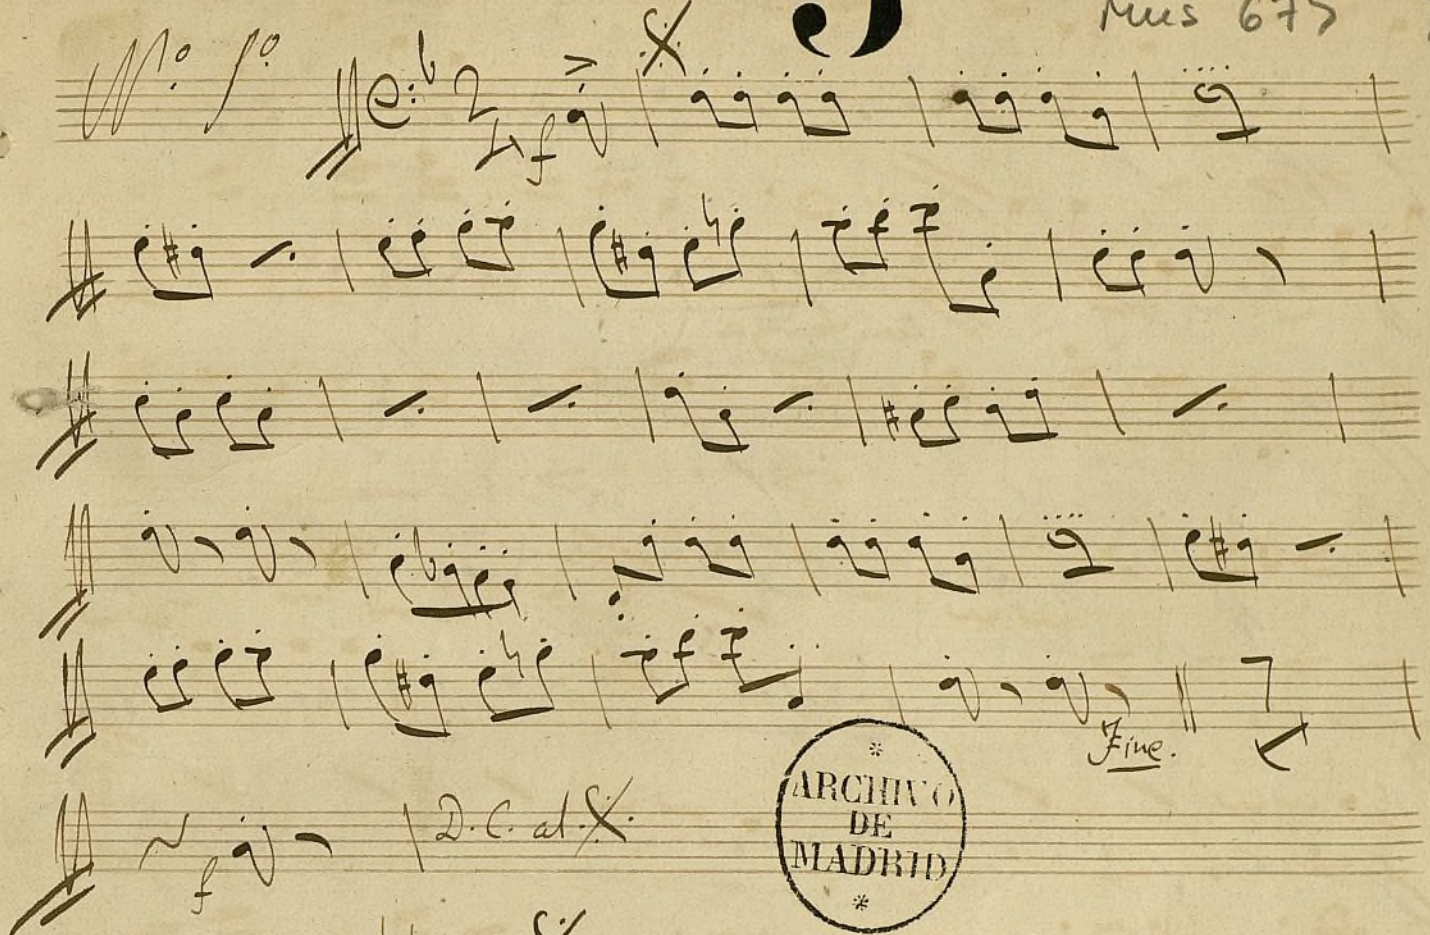 Mus 675
Nº 1º
2
4
f
Fine.
f
D. C. al
ARCHIVO
DE
MADRID